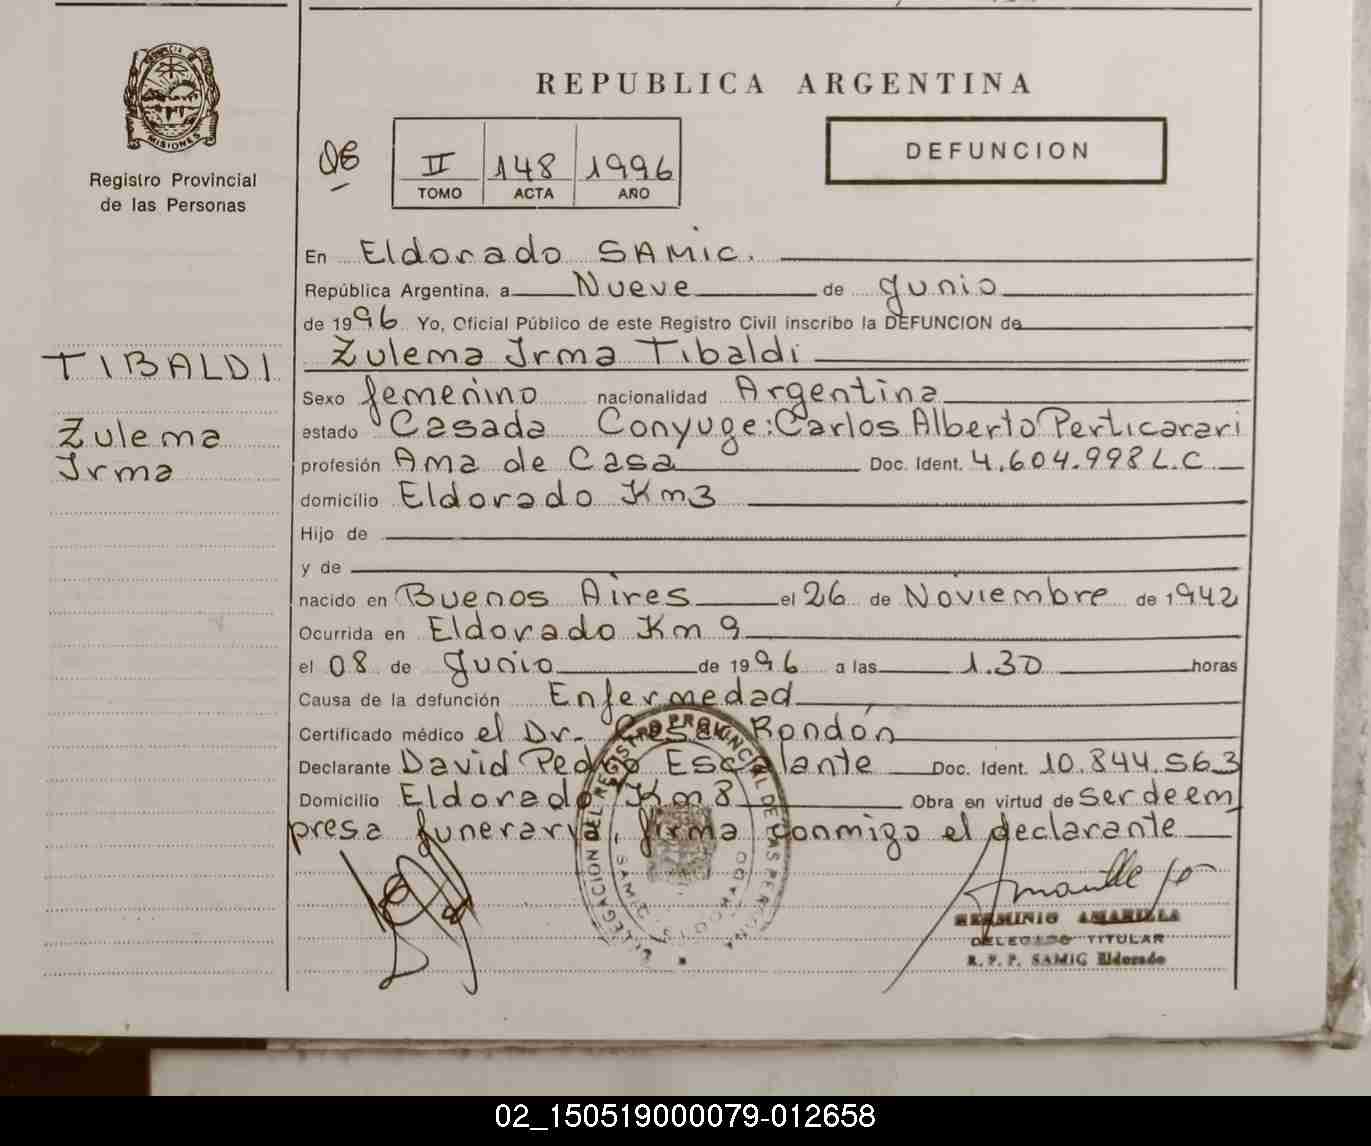 REPUBLICA ARGENTINA
PROVINCIA DE
MISIONES
Registro Provincial
de las Personas
II 148 1996
TOMO ACTA AÑO
DEFUNCION
TIBALDI
Zulema
Irma
En Eldorado SAMIC.
República Argentina, a Nueve de Junio
de 1996 Yo, Oficial Público de este Registro Civil inscribo la DEFUNCION de
Zulema Irma Tibaldi
Sexo femenino nacionalidad Argentina
estado Casada Conyuge: Carlos Alberto Perticarari
profesión Ama de Casa Doc. Ident. 4.604.998 L.C.
domicilio Eldorado Km3
Hijo de
y de
nacido en Buenos Aires el 26 de Noviembre de 1942
Ocurrida en Eldorado Km 9
el 08 de Junio de 1996 a las 1.30 horas
Causa de la defunción Enfermedad
Certificado médico el Dr. Cesar Rondón
Declarante David Pedro Escalante Doc. Ident. 10.844.563
Domicilio Eldorado Km8 Obra en virtud de ser de em
presa funeraria, firma conmigo el declarante
DELEGACION DEL REGISTRO PROVINCIAL DE LAS PERSONAS
SAMIC ELDORADO
HERMINIO AMARILLA
DELEGADO TITULAR
R. P. P. SAMIC Eldorado
02_150519000079-012658